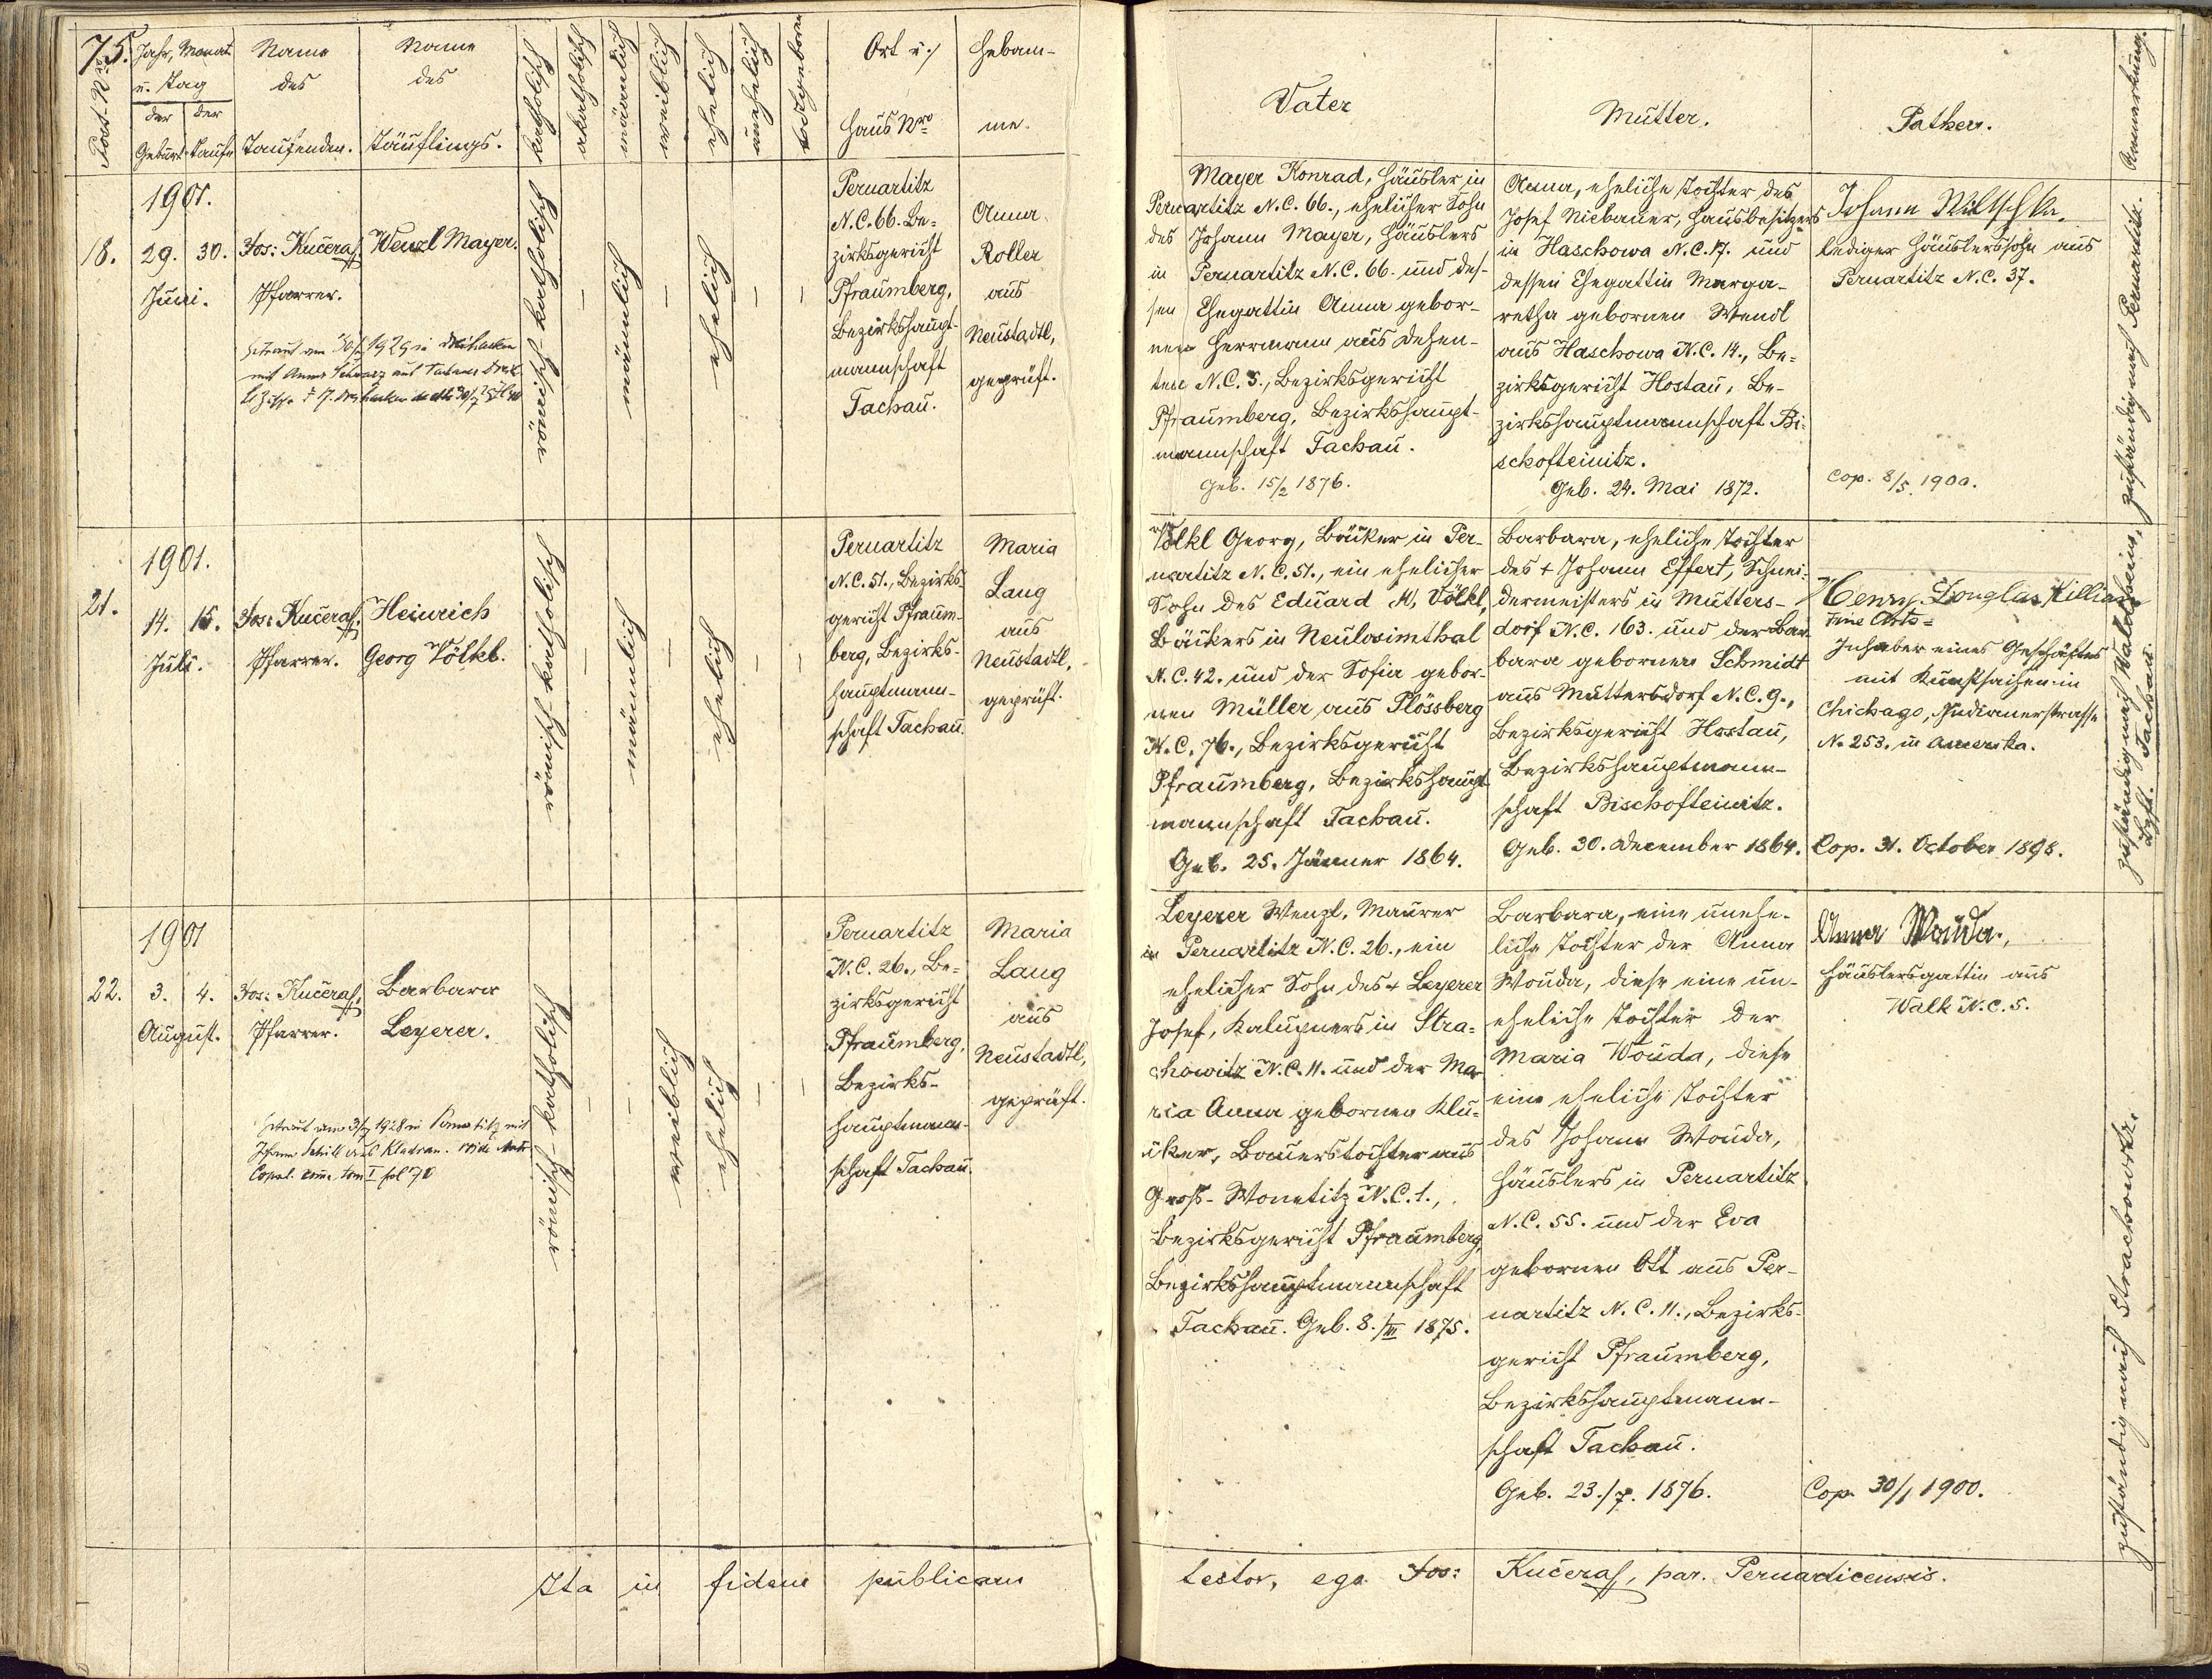 75.
Post-Nro
Jahr, Monat
u. Tag
der Geburt
der Taufe
Name
des
Taufenden.
Name
des
Täuflings.
katholisch
akatholisch
männlich
weiblich
ehelich
unehelich
todtgeboren
Ort u.
Haus Nro
Hebam-
me.
Vater
Mutter.
Pathen.
Anmerkung.
1901.
18.
29. 30.
Juni.
Jos: Kučera,
Pfarrer.
Wenzl Mayer.
Getraut am 1929 in
mit Anna Schwarz aus
römisch-katholisch
–
männlich
–
ehelich
–
–
Pernartitz
N.C. 66. Be=
zirksgericht
Pfraumberg,
Bezirkshaupt-
mannschaft
Tachau.
Anna
Roller
aus
Neustadtl,
geprüft.
Mayer Konrad, Häusler in
Pernartitz N.C. 66., ehelicher Sohn
des Johann Mayer, Häuslers
in Pernartitz N.C. 66. und des-
sen Ehegattin Anna gebor-
nen Herrmann aus Dehen-
ten N.C. 5., Bezirksgericht
Pfraumberg, Bezirkshaupt-
mannschaft Tachau.
Geb. 15/2 1876.
Anna, eheliche Tochter des
Josef Niebauer, Hausbesitzers
in Haschowa N.C. 17. und
dessen Ehegattin Marga-
retha gebornen Wendl
aus Haschowa N.C. 14., Be=
zirksgericht Hostau, Be-
zirkshauptmannschaft Bi-
schofteinitz.
Geb. 24. Mai 1872.
Johann
lediger Häuslerssohn aus
Pernartitz N.C. 37.
Cop. 8/5. 1900.
zuständig nach Pernartitz.
1901.
21.
14. 15.
Juli.
Jos: Kučera,
Pfarrer.
Heinrich
Georg Völkl.
römisch-katholisch
–
männlich
–
ehelich
–
–
Pernartitz
N.C. 51., Bezirks-
gericht Pfraum-
berg, Bezirks-
hauptmann-
schaft Tachau.
Maria
Lang
aus
Neustadtl,
geprüft.
Völkl Georg, Bäcker in Per-
nartitz N.C. 51., ein ehelicher
Sohn des Eduard M. Völkl,
Bäckers in Neulosimthal
N.C. 42. und der Sofia gebor-
nen Müller aus Plössberg
N.C. 76., Bezirksgericht
Pfraumberg, Bezirkshaupt-
mannschaft Tachau.
Geb. 25. Jänner 1864.
Barbara, eheliche Tochter
des † Johann Effert, Schnei-
dermeisters in Mutters-
dorf N.C. 163. und der Bar-
bara gebornen Schmidt
aus Muttersdorf N.C. 9.,
Bezirksgericht Hostau,
Bezirkshauptmann-
schaft Bischofteinitz.
Geb. 30. December 1864.
Henry Douglas Killian
Fine Arts=
Inhaber eines Geschäftes
mit Kunstsachen in
Chickago, Indianerstrasse
No 253. in Amerika.
Cop. 31. October 1898.
zuständig nach Waldheim,
Bzft. Tachau.
1901
22.
3. 4.
August.
Jos: Kučera,
Pfarrer.
Barbara
Leyerer.
Getraut am 1928 in mit
Johann aus Kladrau. vide
Copul. tom I fol 70
römisch-katholisch
–
–
weiblich
ehelich
–
–
Pernartitz
N.C. 26., Be=
zirksgericht
Pfraumberg,
Bezirks-
hauptmann-
schaft Tachau.
Maria
Lang
aus
Neustadtl,
geprüft.
Leyerer Wenzl, Maurer
in Pernartitz N.C. 26., ein
ehelicher Sohn des † Leyerer
Josef, Kaluppners in Stra=
chowitz N.C. 11. und der Ma-
ria Anna gebornen Klu-
Bauerstochter aus
Gross-Wonetitz N.C. 1.,
Bezirksgericht Pfraumberg,
Bezirkshauptmannschaft
Tachau. Geb. 8./III 1875.
Barbara, eine unehe-
liche Tochter der Anna
Wouda, diese eine un-
eheliche Tochter der
Maria Wouda, diese
eine eheliche Tochter
des Johann Wouda,
Häuslers in Pernartitz
N.C. 55. und der Eva
gebornen Ott aus Per-
nartitz N.C. 11., Bezirks-
gericht Pfraumberg,
Bezirkshauptmann-
schaft Tachau.
Geb. 23./7. 1876.
Anna Wouda.,
Häuslersgattin aus
Walk N.C. 5.
Cop. 30/1 1900.
zuständig nach Strachowitz.
Ita in fidem publicam
testor, ego Jos: Kučera, par. Pernarticensis.